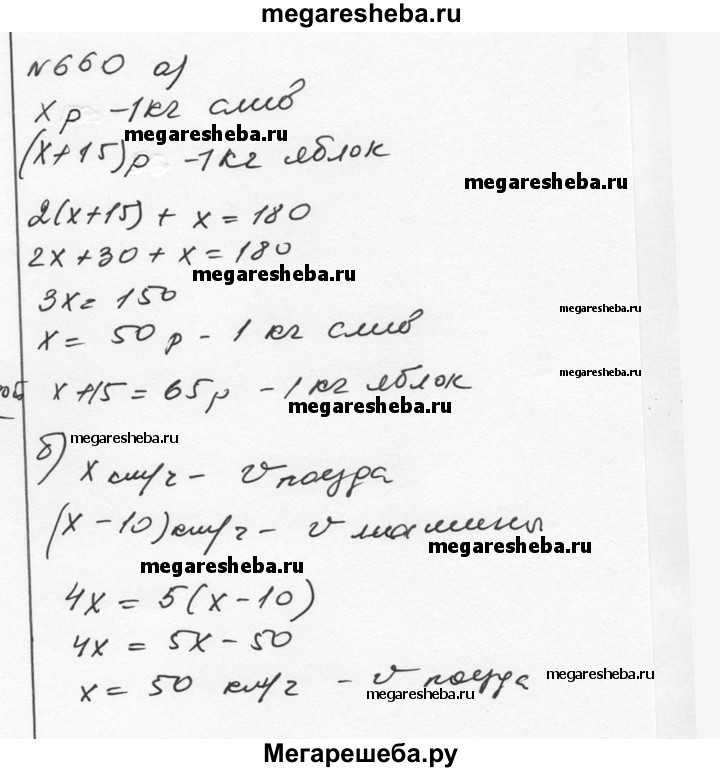 megaresheba.ru
№660 а)
x р -1кг слив
megaresheba.ru
(x+15)р -1кг яблок
megaresheba.ru
2(x+15) + x = 180
2x+30 + x = 180
megaresheba.ru
3x = 150
megaresheba.ru
x = 50 р - 1 кг слив
megaresheba.ru
x+15 = 65р - 1 кг яблок
megaresheba.ru
megaresheba.ru
б) x км/ч - v поезда
(x-10) км/ч - v машины
megaresheba.ru
megaresheba.ru
4x = 5(x-10)
4x = 5x-50
x = 50 км/ч - v поезда
megaresheba.ru
megaresheba.ru
Мегарешеба.ру